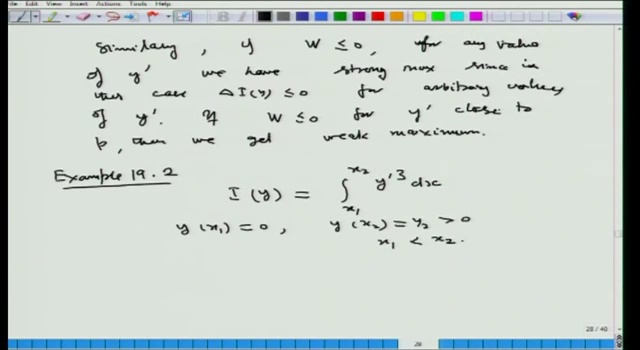 File View Insert Actions Tools Help
Similarly, if W ≤ 0, for any value
of y' we have strong max since in
this case ΔI(y) ≤ 0 for arbitrary values
of y'. If W ≤ 0 for y' close to
p, then we get weak maximum.
Example 19.2 I(y) = ∫_{x₁}^{x₂} y'³ dx
y(x₁) = 0, y(x₂) = y₂ > 0
x₁ < x₂.
28 / 40
28